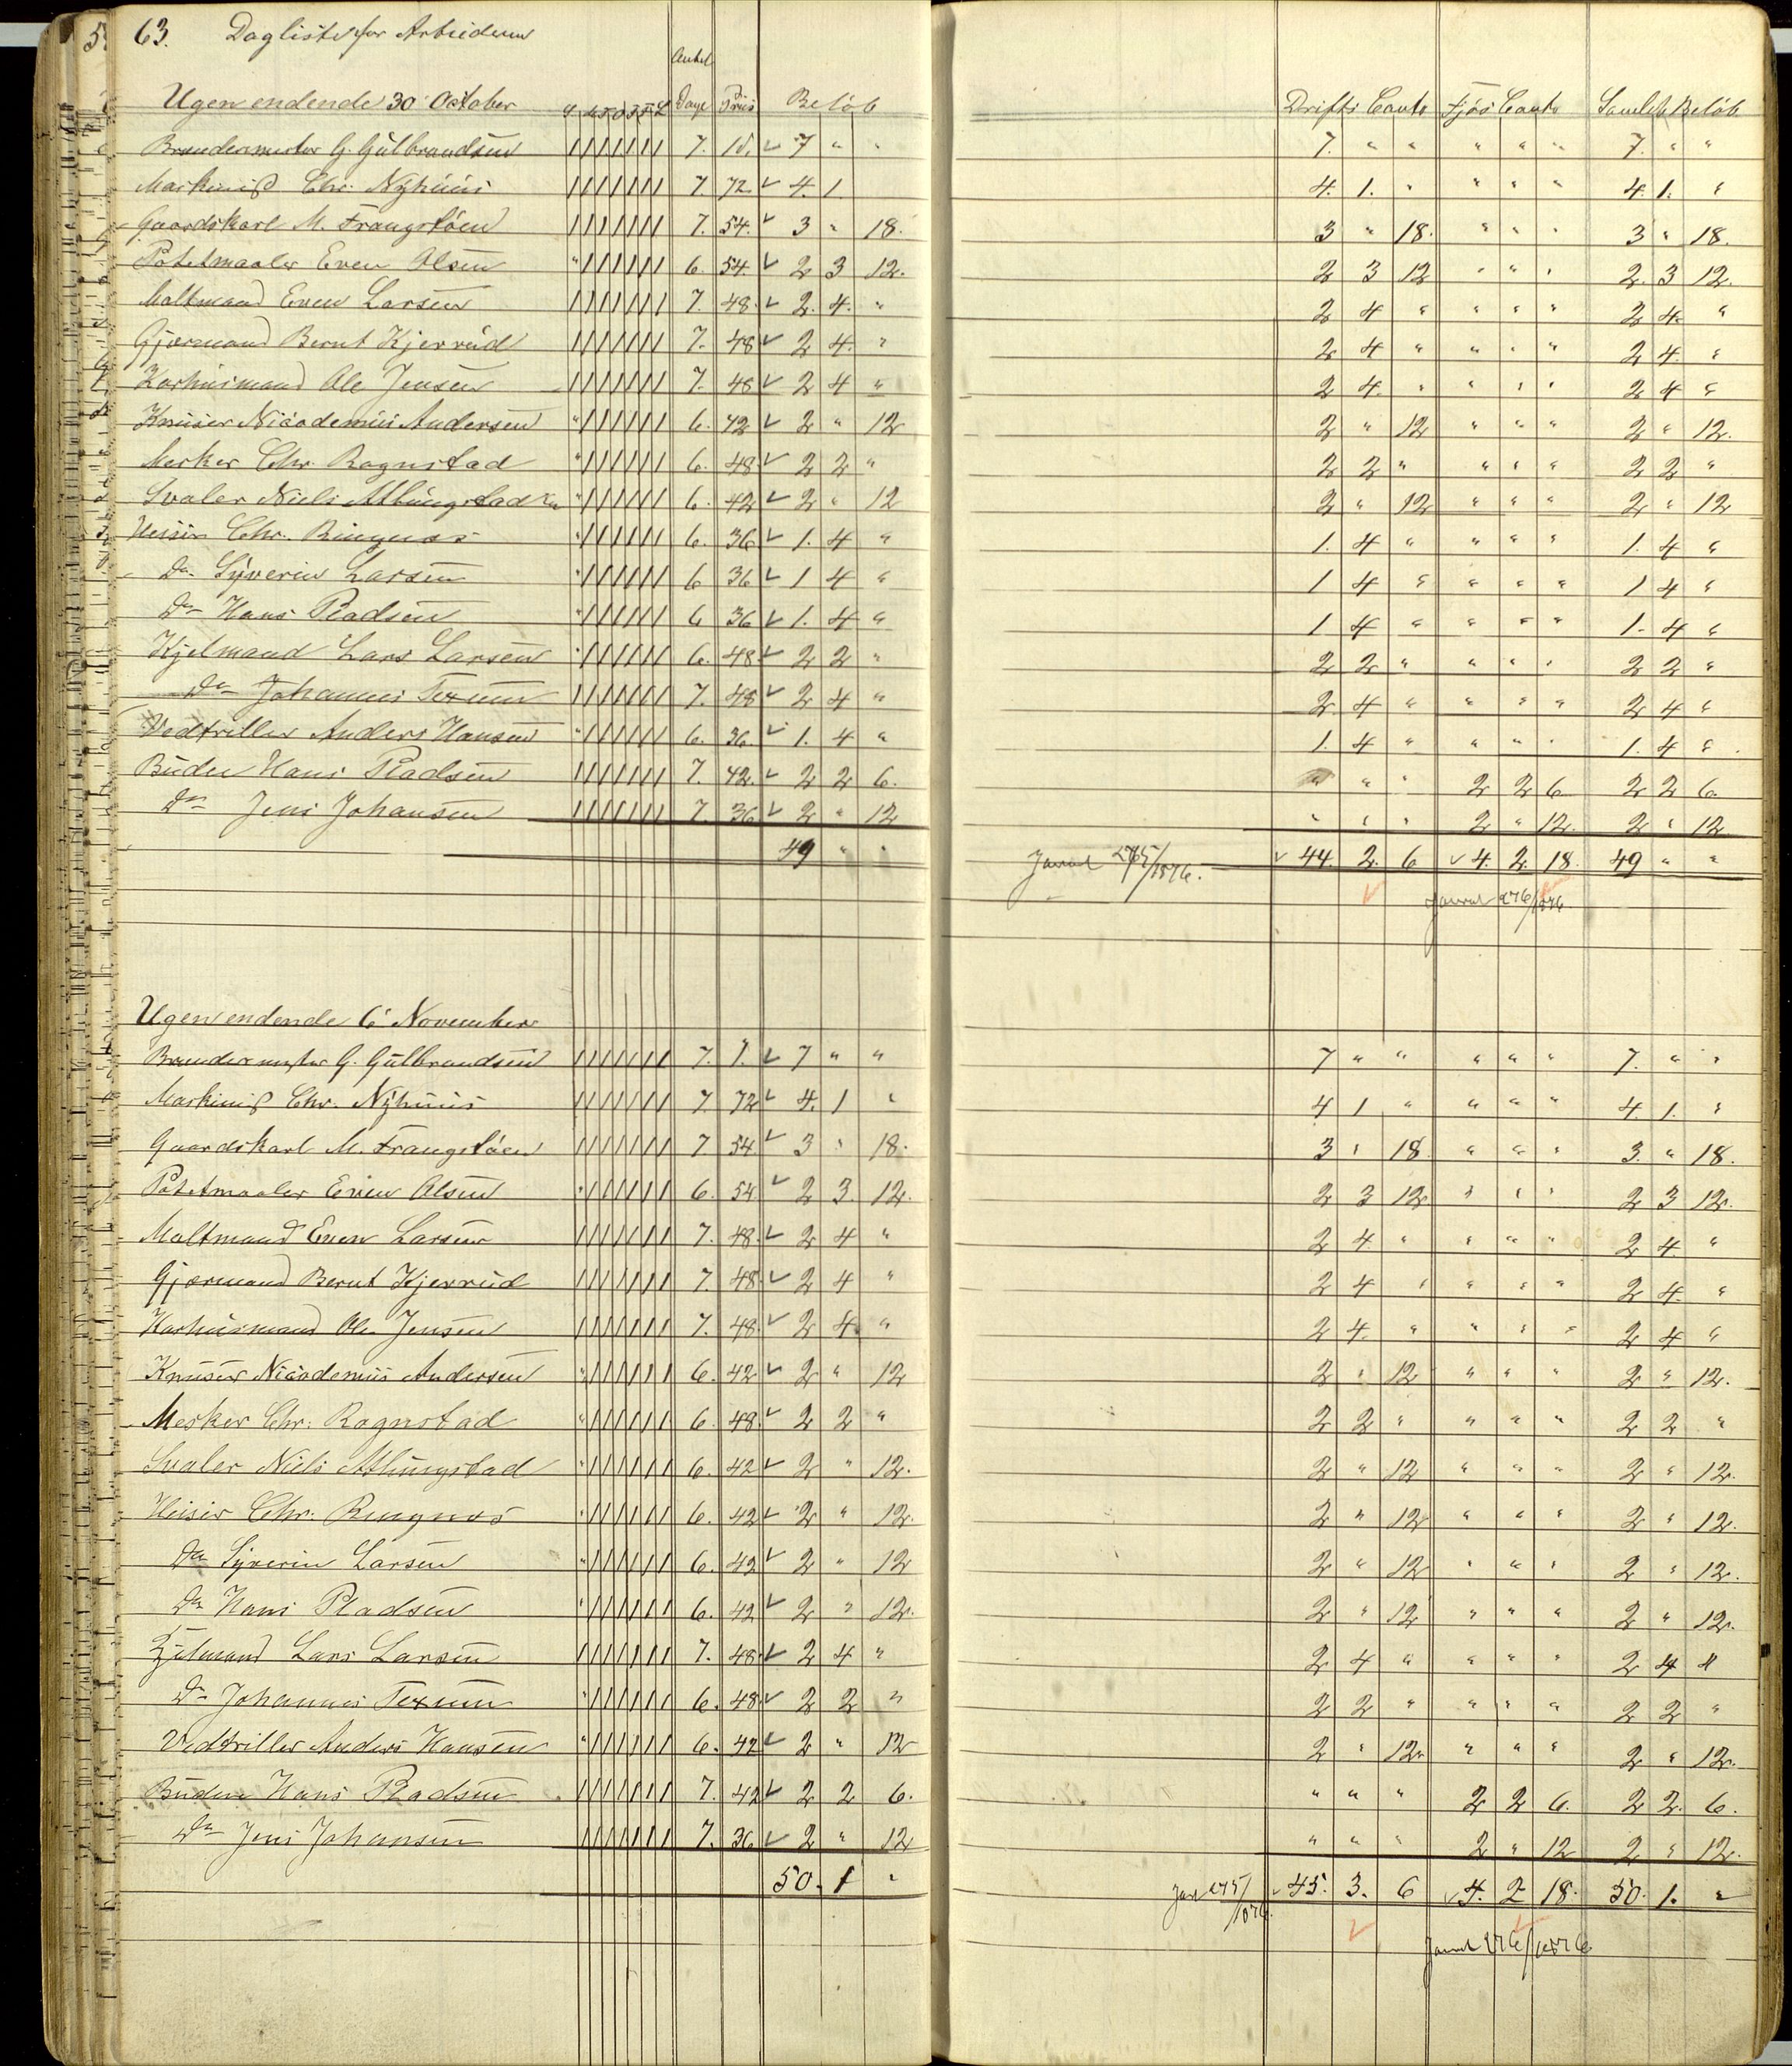 63. Dagliste for Arbeiderne
Ugen endende 30 October Antal Dage Priis Beløb Drifts Conto Fjøs Conto Samlet Beløb
Brændermester G. Gulbrandsen 7. 7 " " 7. " " " " " 7. " "
Maskinist Chr. Nyhuus 7 72 4. 1 4. 1. " " " " 4. 1. "
Gaardskarl M. Trangstøen 7. 54. 3 " 18. 3 " 18. " " " 3 " 18.
Potetmaaler Even Olsen " 6. 54 2 3 12. 2 3 12 " " " 2. 3 12.
Maltmand Even Larsen 7. 48. 2. 4. " 2 4 " " " " 2 4. "
Gjærmand Bernt Kjerrud 7. 48 2 4. " 2 4 " " " " 2 4. "
Karhuusmand Ole Jensen 7. 48 2 4 " 2 4. " " " " 2 4 "
Knuser Nicodemus Andersen " 6. 42 2 " 12 2 " 12 " " " 2 " 12.
Mesker Chr. Rognstad " 6. 48. 2 2 " 2 2 " " " " 2 2 "
Svaler Niels Athungstad " 6. 42 2 " 12 2 " 12 " " " 2 " 12
Heiser Chr. Ringnæs " 6. 36 1. 4 " 1. 4 " " " " 1. 4 "
Do Syverin Larsen " 6 36 1 4 " 1 4 " " " " 1 4 "
Do Hans Pladsen " 6 36 1. 4 " 1 4 " " " " 1. 4 "
Kjelmand Lars Larsen " 6. 48. 2 2 " 2 2 " " " " 2 2 "
Do Johannes Texum 7. 48 2 4 " 2. 4 " " " " 2 4 "
Vedtriller Anders Hansen " 6. 36. 1. 4 " 1. 4 " " " " 1. 4 "
Budeie Hans Pladsen 7. 42. 2 2 6. " " " 2 2 6 2 2 6.
Do Jens Johansen 7. 36 2 " 12 " " " 2 " 12. 2 " 12
49 " " Journal 275/1876. 44. 2. 6 4. 2. 18. 49 " "
Journal 276/1876.
Ugen endende 6 November
Brændermester G. Gulbrandsen 7. 1. 7 " " 7 " " " " " 7. " "
Maskinist Chr. Nyhuus 7. 72 4. 1 " 4 1 " " " " 4 1. "
Gaardskarl M. Trangstøen 7 54. 3 " 18. 3 " 18. " " " 3. " 18.
Potetmaaler Even Olsen " 6. 54 2 3. 12. 2 3 12 " " " 2 3 12.
Maltmand Even Larsen 7. 48. 2 4 " 2 4. " " " " 2 4 "
Gjærmand Bernt Kjerrud 7. 48. 2 4 " 2 4 " " " " 2 4. "
Karhuusmand Ole Jensen 7. 48. 2 4. " 2 4. " " " " 2 4 "
Knuser Nicodemus Andersen " 6. 42 2 " 12 2 " 12 " " " 2 " 12.
Mesker Chr. Rognstad " 6. 48. 2 2 " 2 2 " " " " 2 2 "
Svaler Niels Athungstad " 6. 42 2 " 12. 2 " 12 " " " 2 " 12.
Heiser Chr. Ringnæs " 6. 42 2 " 12. 2 " 12 " " " 2 " 12.
Do Syverin Larsen " 6. 42 2 " 12 2 " 12 " " " 2 " 12.
Do Hans Pladsen " 6. 42 2 " 12. 2 " 12 " " " 2 " 12.
Kjelmand Lars Larsen 7. 48. 2 4 " 2 4 " " " " 2 4 "
Do Johannes Texum " 6. 48. 2 2 " 2 2 " " " " 2 2 "
Vedtriller Anders Hansen " 6. 42 2 " 12 2 " 12. " " " 2 " 12.
Budeie Hans Pladsen 7. 42 2 2 6. " " " 2 2 6. 2 2. 6.
Do Jens Johansen 7. 36 2 " 12 " " " 2 " 12 2 " 12.
50. 1 " 275/1876. 45. 3. 6 4. 2 18. 50. 1. "
Journal 276/1876